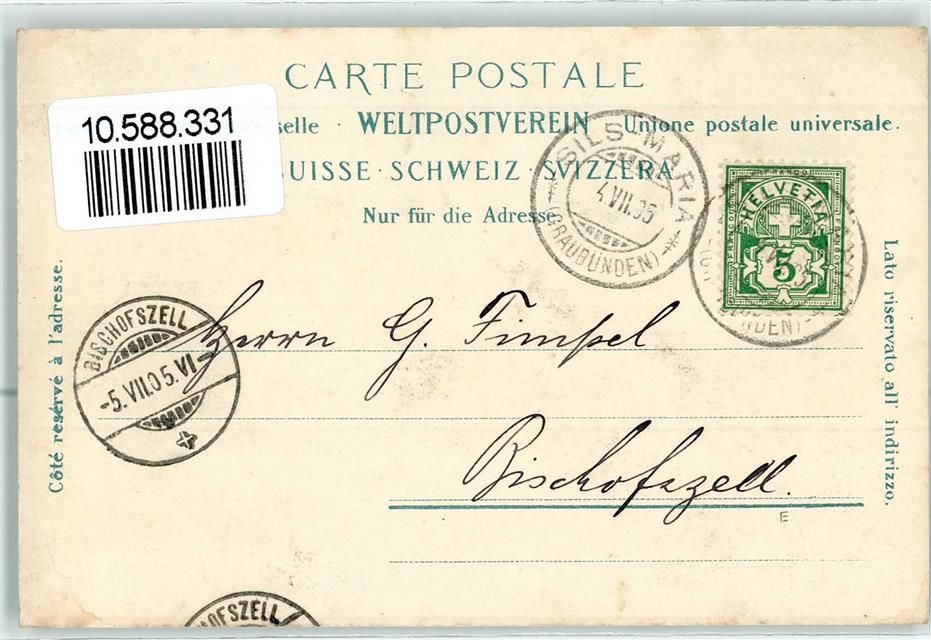 CARTE POSTALE
10.588.331
selle · WELTPOSTVEREIN Unione postale universale.
UISSE · SCHWEIZ · SVIZZERA
Nur für die Adresse
SILS-MARIA
4.VII.05
(GRAUBÜNDEN)
FRANCO
HELVETIA
5
NDEN)
Côté reservé à l'adresse.
Lato riservato all' indirizzo.
BISCHOFSZELL
-5.VII.05.VI
Herrn G. Timpel
Bischofszell.
E
HOFSZELL